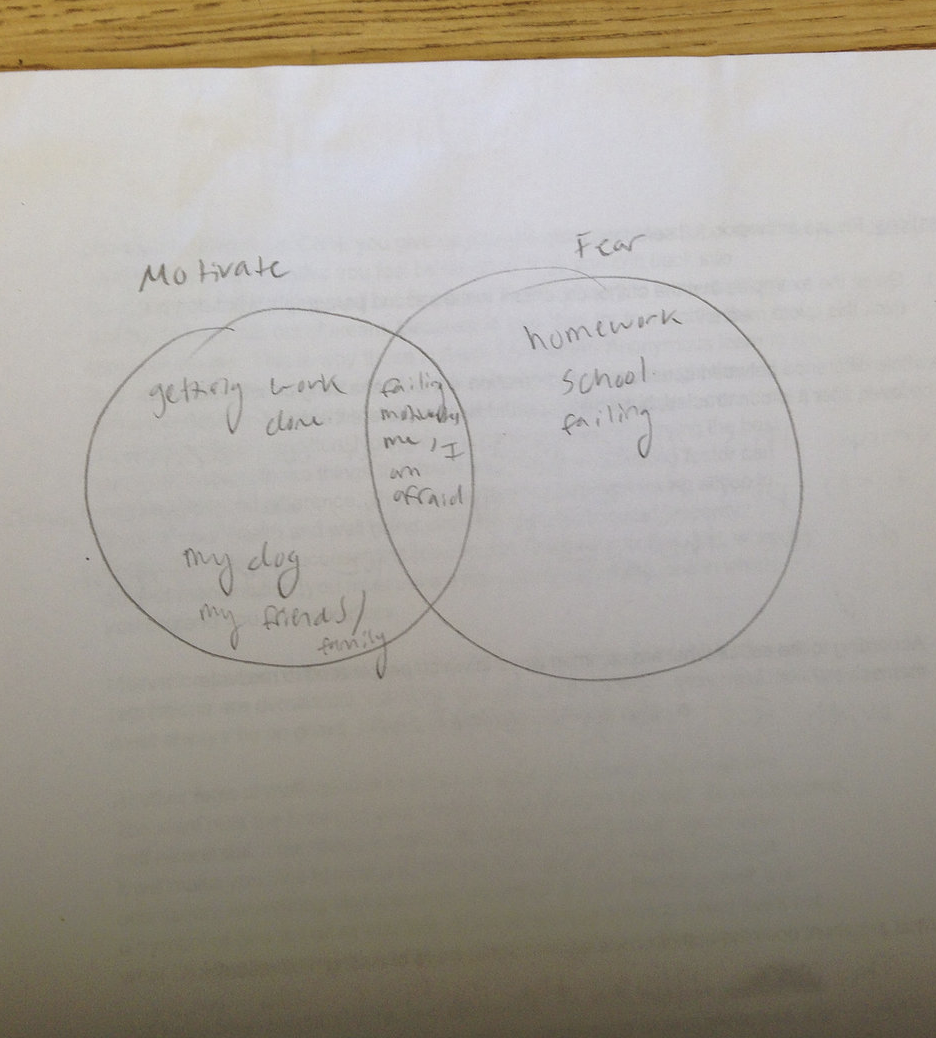 Motivate
Fear
getting work
done
my dog
my friends/
family
failing
motivates
me, I
am
afraid
homework
school
failing